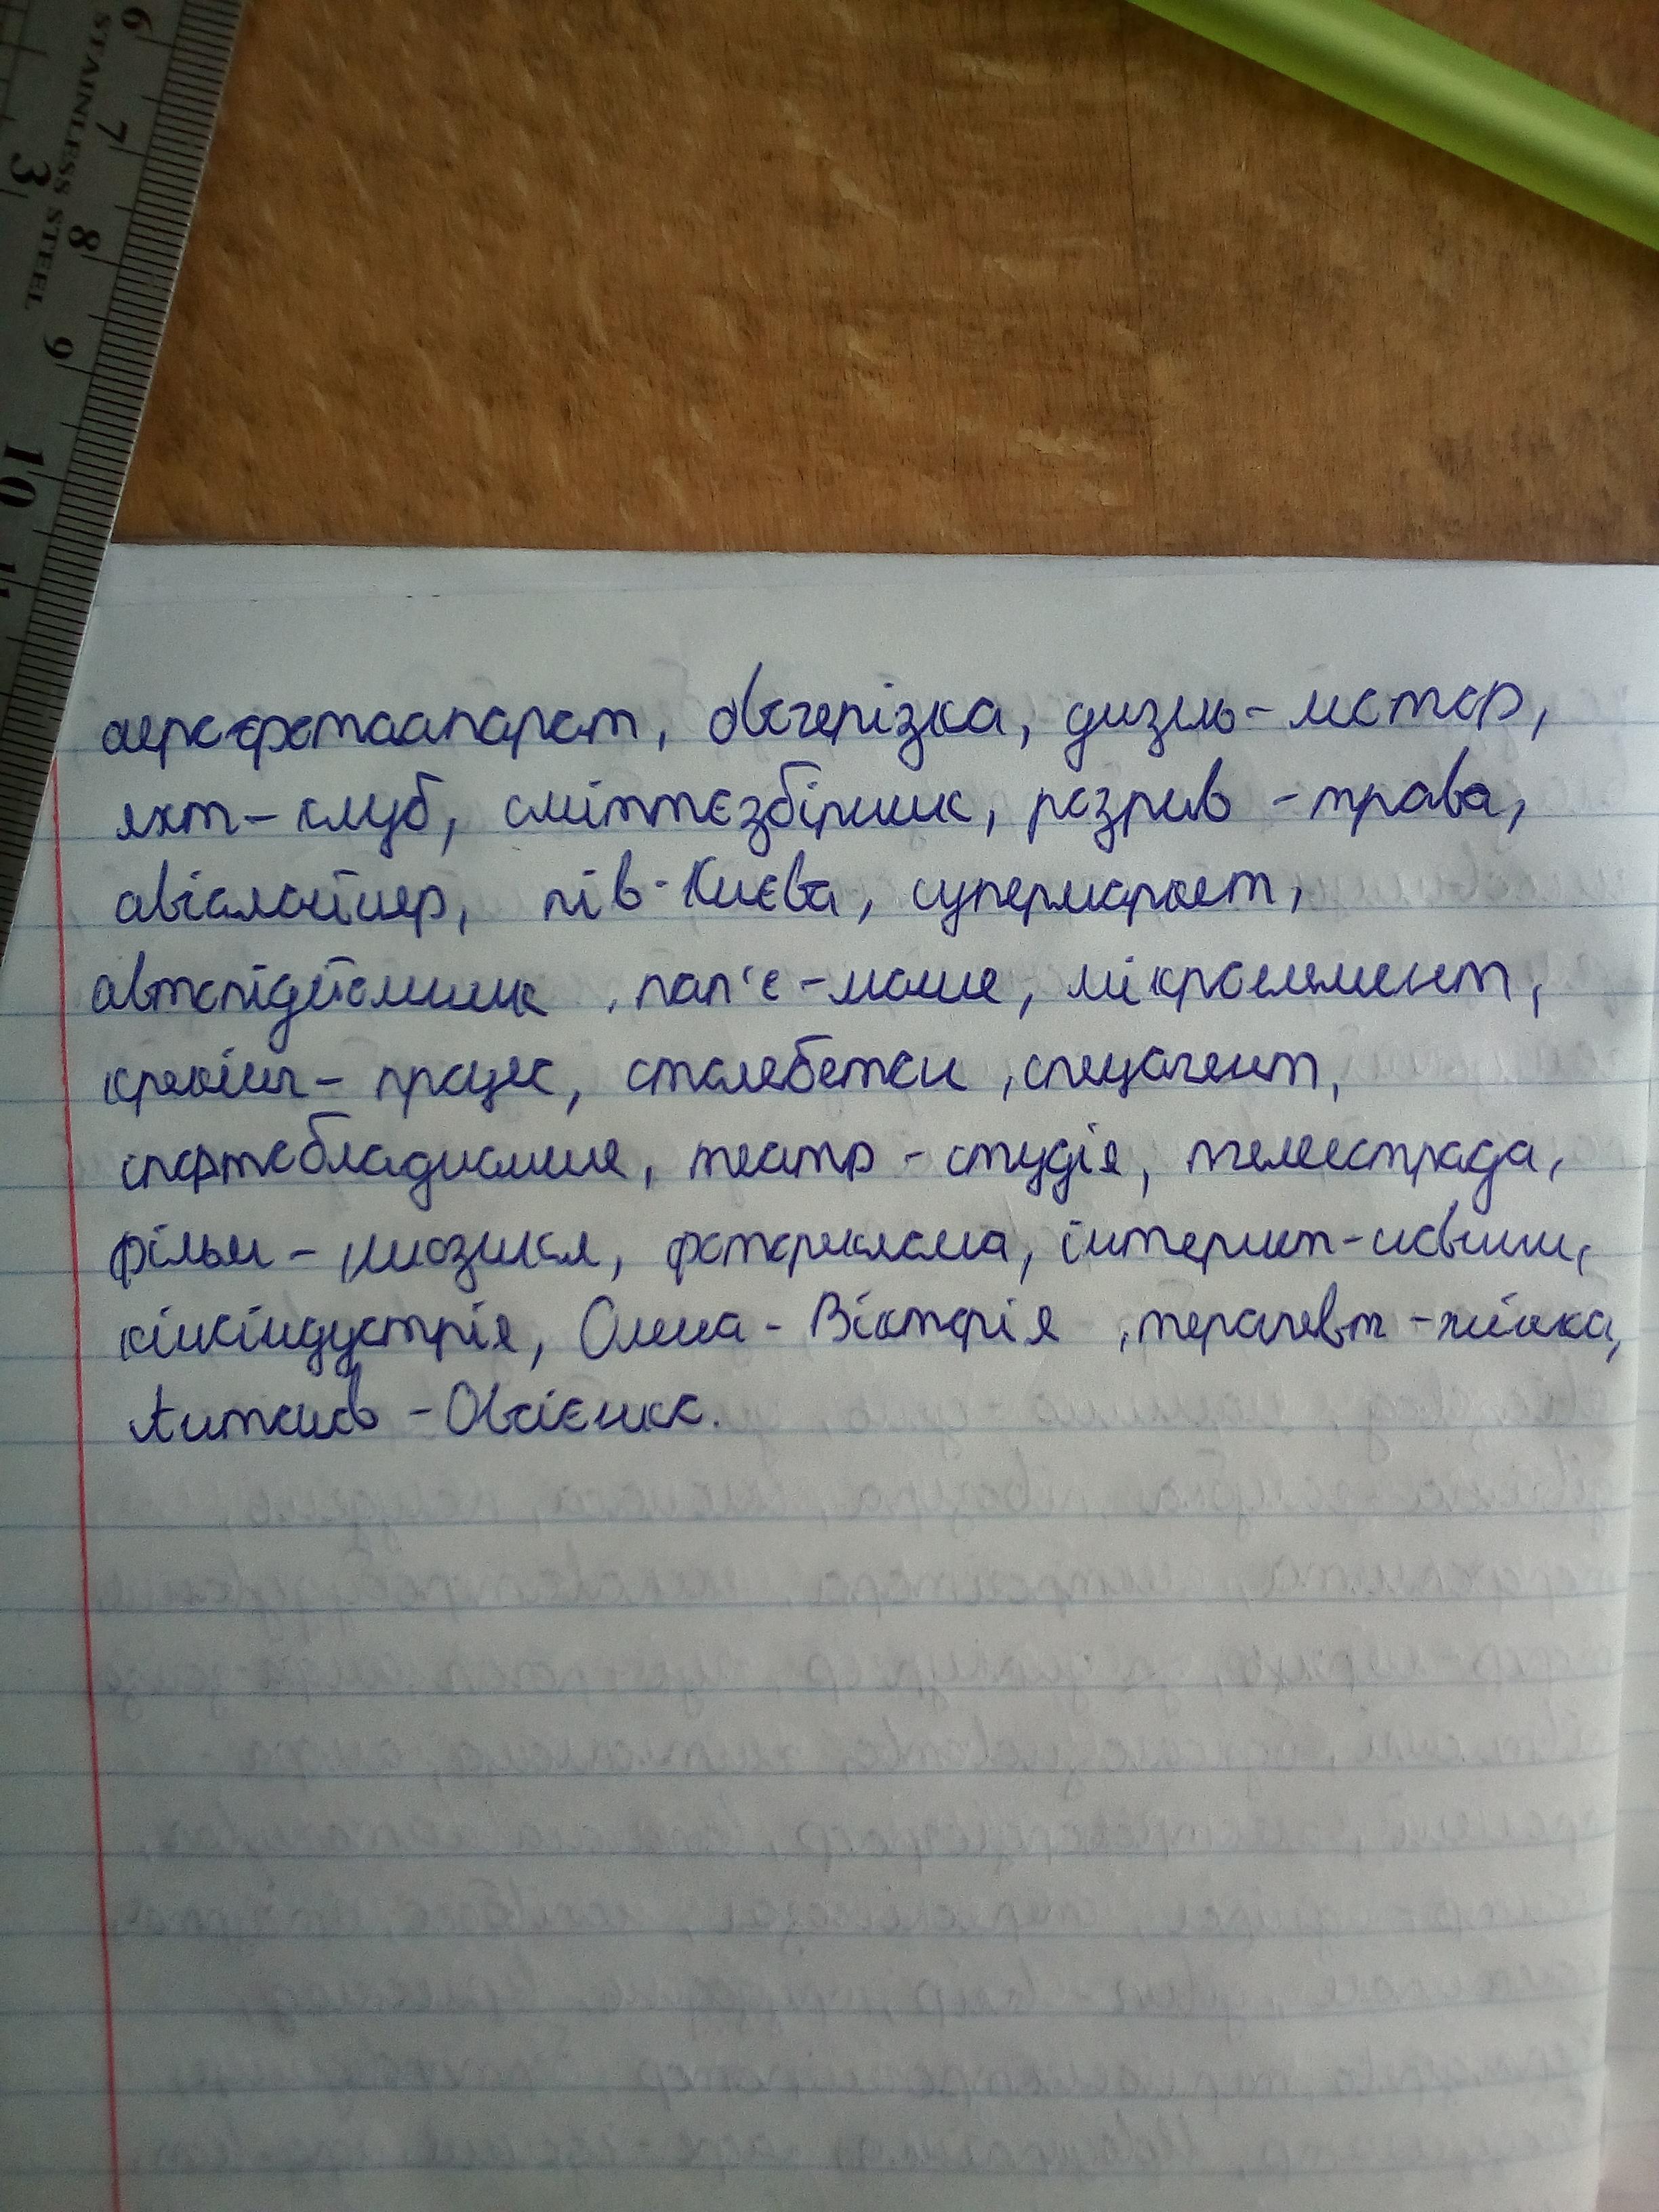 6 7 8 9 10 11
STAINLESS STEEL
3
аерофотоапарат, овочерізка, дизель-мотор,
яхт-клуб, сміттєзбірник, розрив-трава,
авіалайнер, пів-Києва, супермаркет,
автопідйомник, пап'є-маше, мікроелемент,
крекінг-процес, сталебетон, спецагент,
спортобладнання, театр-студія, телеестрада,
фільм-мюзикл, фотореклама, інтернет-новини,
кіноіндустрія, Олена-Вікторія, терапевт-жінка,
Литвинов-Овсієнко.